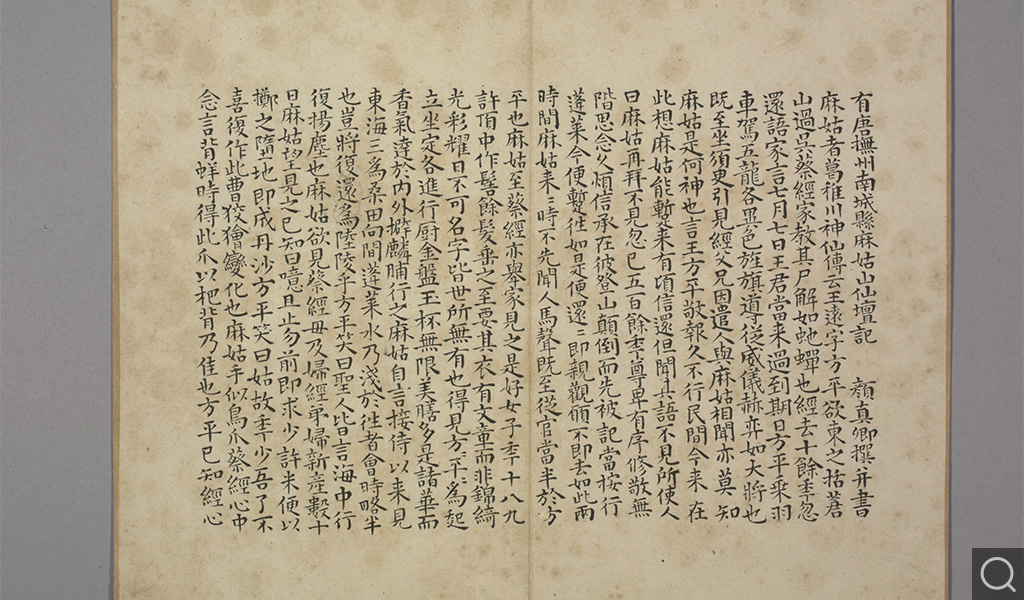 有唐撫州南城縣麻姑山仙壇記　顏真卿撰并書
麻姑者葛稚川神仙傳云王遠字方平欲東之括蒼
山過吳蔡經家教其尸解如虵蟬也經去十餘季忽
還語家言七月七日王君當来過到期日方平乗羽
車駕五龍各異色旌旗導從威儀赫弈如大將也
既至坐須臾引見經父兄因遣人與麻姑相聞亦莫知
麻姑是何神也言王方平敬報久不行民間今来在
此想麻姑能暫来有頃信還但聞其語不見所使人
曰麻姑再拜不見忽已五百餘季尊卑有序修敬無
階思念久煩信承在彼登山顛倒而先被記當按行
蓬萊今便蹔往如是便還=即親觀願不即去如此兩
時間麻姑来=時不先聞人馬聲既至從官當半於方
平也麻姑至蔡經亦舉家見之是好女子季十八九
許頂中作髻餘髮垂之至要其衣有文章而非錦綺
光彩耀日不可名字皆世所無有也得見方=平=為起
立坐定各進行厨金盤玉杯無限美膳多是諸華而
香氣達於内外擗麟脯行之麻姑自言接侍以来見
東海三為桑田向間蓬萊水乃淺於往者會時略半
也豈將復還為陸陵乎方平笑曰聖人皆言海中行
復揚塵也麻姑欲見蔡經母及婦經弟婦新產數十
日麻姑望見之已知曰噫且止勿前即求少許米便以
擲之墮地即成丹沙方平笑曰姑故季少吾了不
喜復作此曹狡獪變化也麻姑手似鳥爪蔡經心中
念言背蛘時得此爪以杷背乃佳也方平已知經心